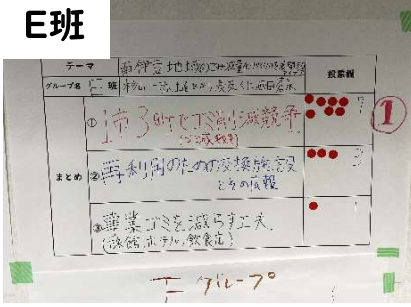 E班
テーマ
南伊豆地域のごみ減量化
投票欄
グループ名 E班
まとめ
① 1市3町でゴミ削減競争 7 ①
② 再利用のための交換施設 3
とその広報
③ 事業ゴミを減らす工夫 1
(旅館、ホテル、飲食店)
E グループ